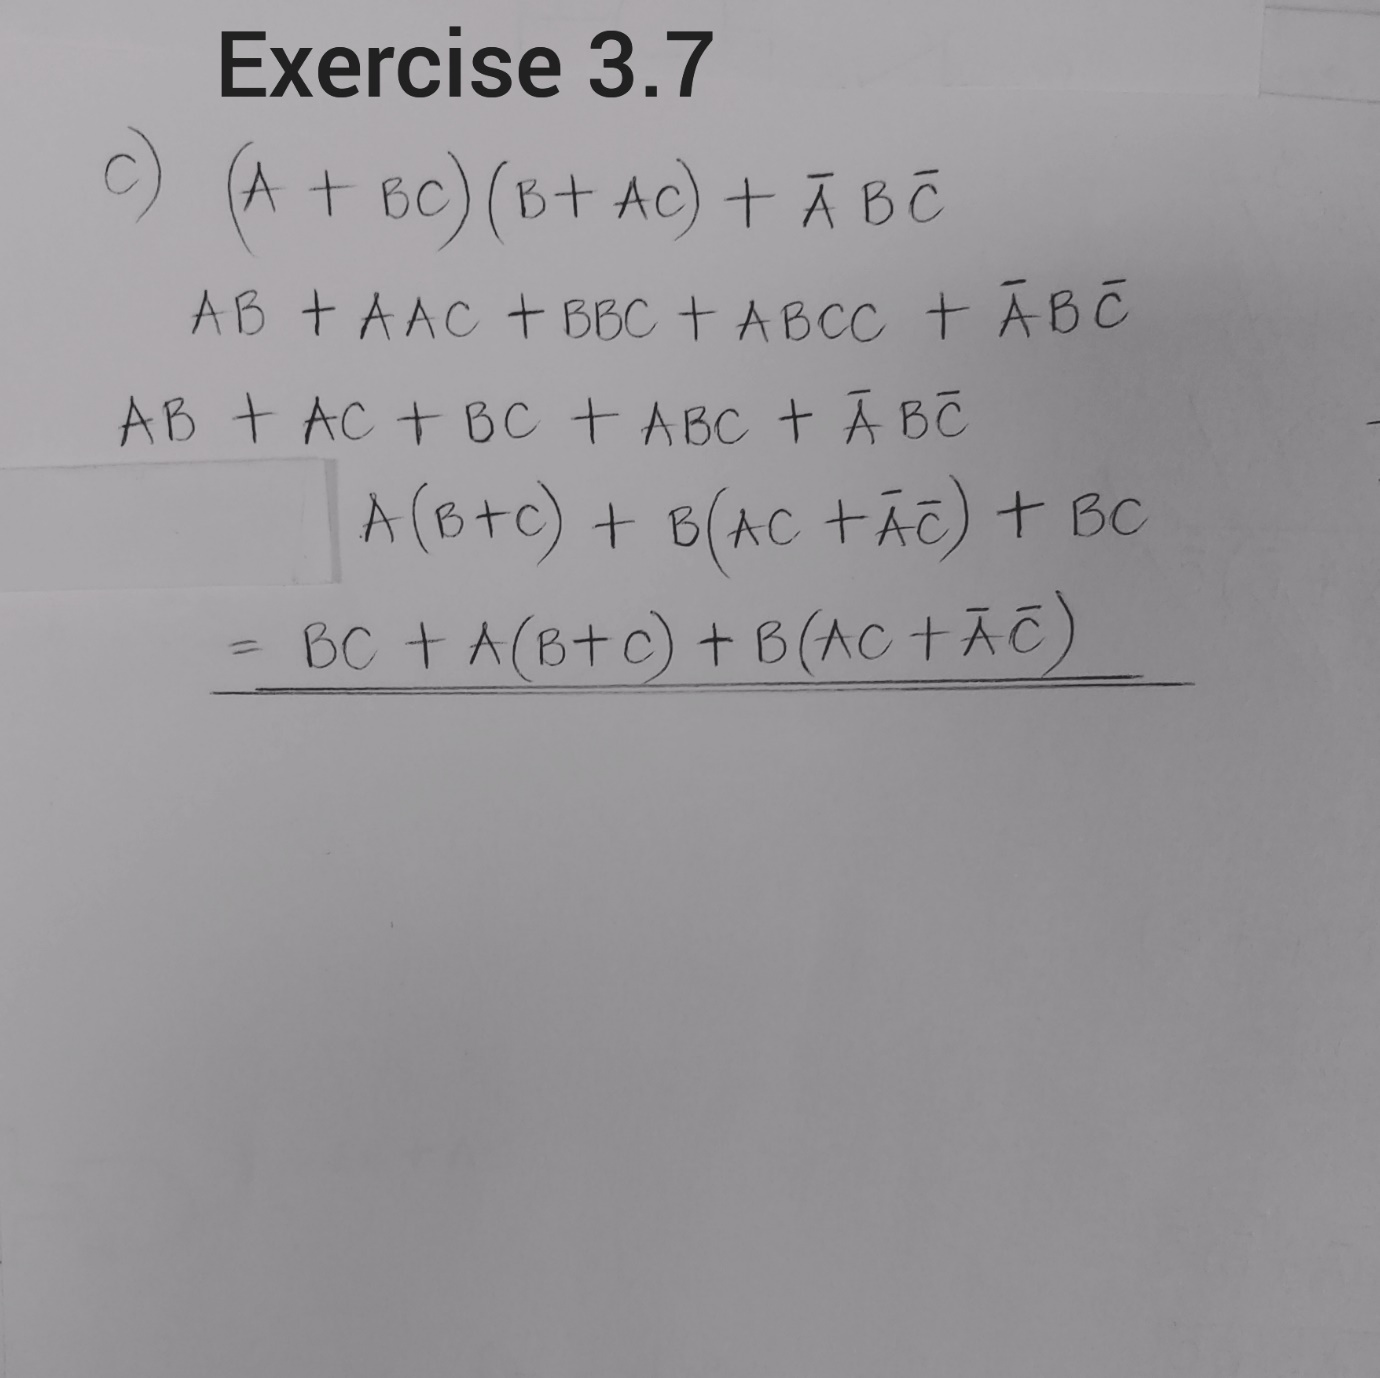 Exercise 3.7
c) (A + BC)(B + AC) + Ā B C̄
AB + AAC + BBC + ABCC + Ā B C̄
AB + AC + BC + ABC + Ā B C̄
A(B+C) + B(AC + Ā C̄) + BC
= BC + A(B+C) + B(AC + Ā C̄)